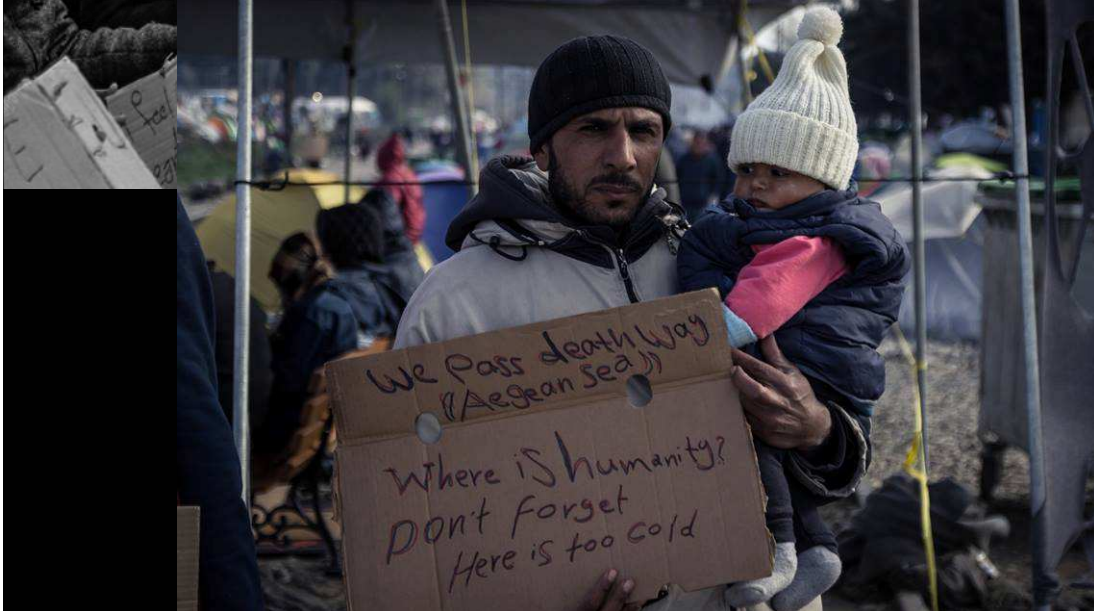 feel
We Pass death Way
((Aegean Sea))
Where is humanity?
Don't forget
Here is too cold